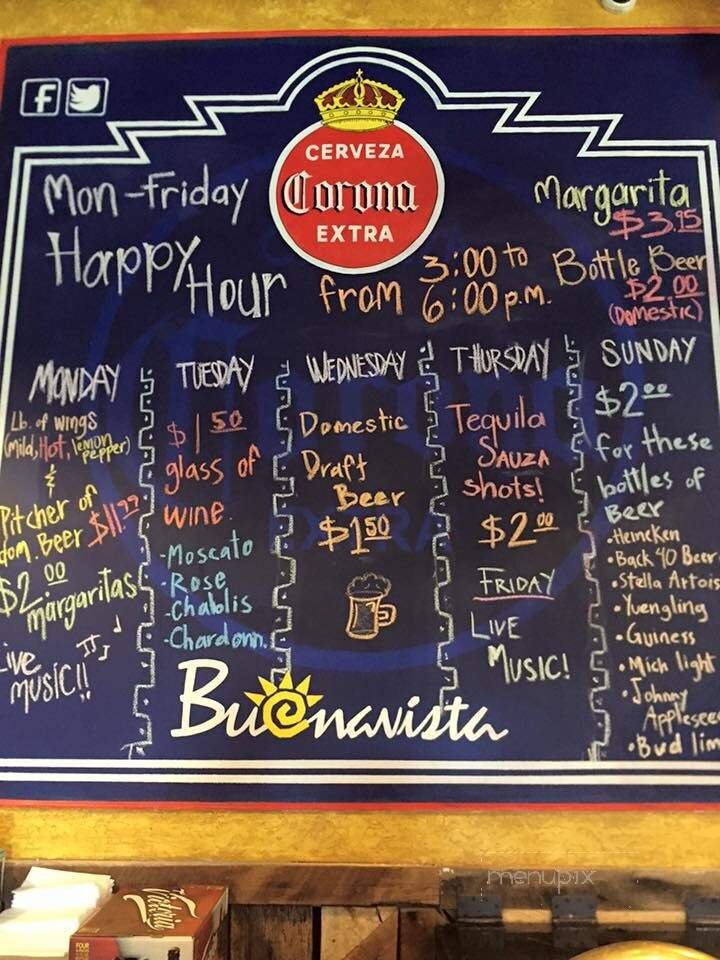 CERVEZA
Corona
EXTRA
Mon-Friday
Happy Hour
from 3:00 to
6:00 p.m.
Margarita
$3.95
Bottle Beer
$2.00
(Domestic)
MONDAY
Lb. of wings
(mild, Hot, lemon
pepper)
&
Pitcher of
dom. Beer $11.99
$2.00
margaritas
Live
MUSIC!!
TUESDAY
$1 50
glass of
wine
-Moscato
-Rose
-Chablis
-Chardonn.
WEDNESDAY
Domestic
Draft
Beer
$1 50
THURSDAY
Tequila
SAUZA
shots!
$2.00
FRIDAY
LIVE
MUSIC!
SUNDAY
$2 00
for these
bottles of
Beer
•Heineken
•Back 40 Beer
•Stella Artois
•Yuengling
•Guiness
•Mich light
•Johnny
Applesee
•Bud lim
Buenavista
Victoria
FOUR
menupix